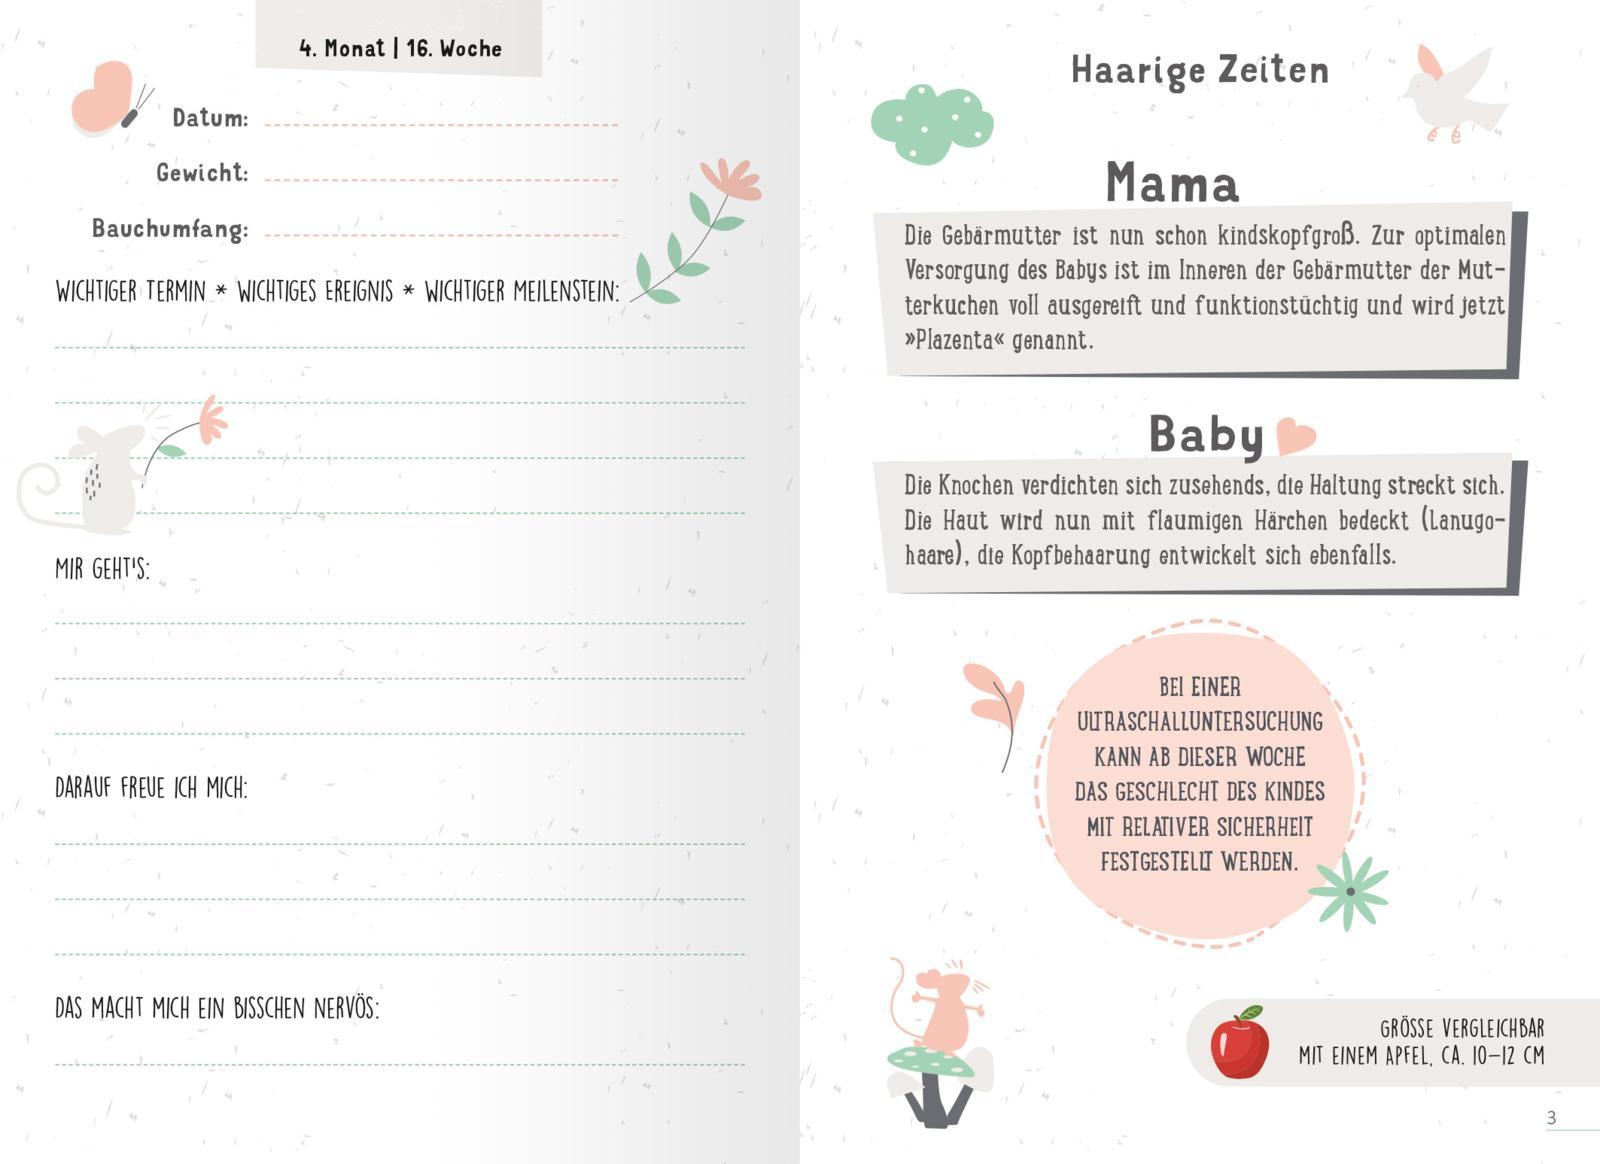 4. Monat | 16. Woche
Datum:
Gewicht:
Bauchumfang:
WICHTIGER TERMIN * WICHTIGES EREIGNIS * WICHTIGER MEILENSTEIN:
MIR GEHT'S:
DARAUF FREUE ICH MICH:
DAS MACHT MICH EIN BISSCHEN NERVÖS:
Haarige Zeiten
Mama
Die Gebärmutter ist nun schon kindskopfgroß. Zur optimalen
Versorgung des Babys ist im Inneren der Gebärmutter der Mut-
terkuchen voll ausgereift und funktionstüchtig und wird jetzt
»Plazenta« genannt.
Baby
Die Knochen verdichten sich zusehends, die Haltung streckt sich.
Die Haut wird nun mit flaumigen Härchen bedeckt (Lanugo-
haare), die Kopfbehaarung entwickelt sich ebenfalls.
BEI EINER
ULTRASCHALLUNTERSUCHUNG
KANN AB DIESER WOCHE
DAS GESCHLECHT DES KINDES
MIT RELATIVER SICHERHEIT
FESTGESTELLT WERDEN.
GRÖSSE VERGLEICHBAR
MIT EINEM APFEL, CA. 10–12 CM
3